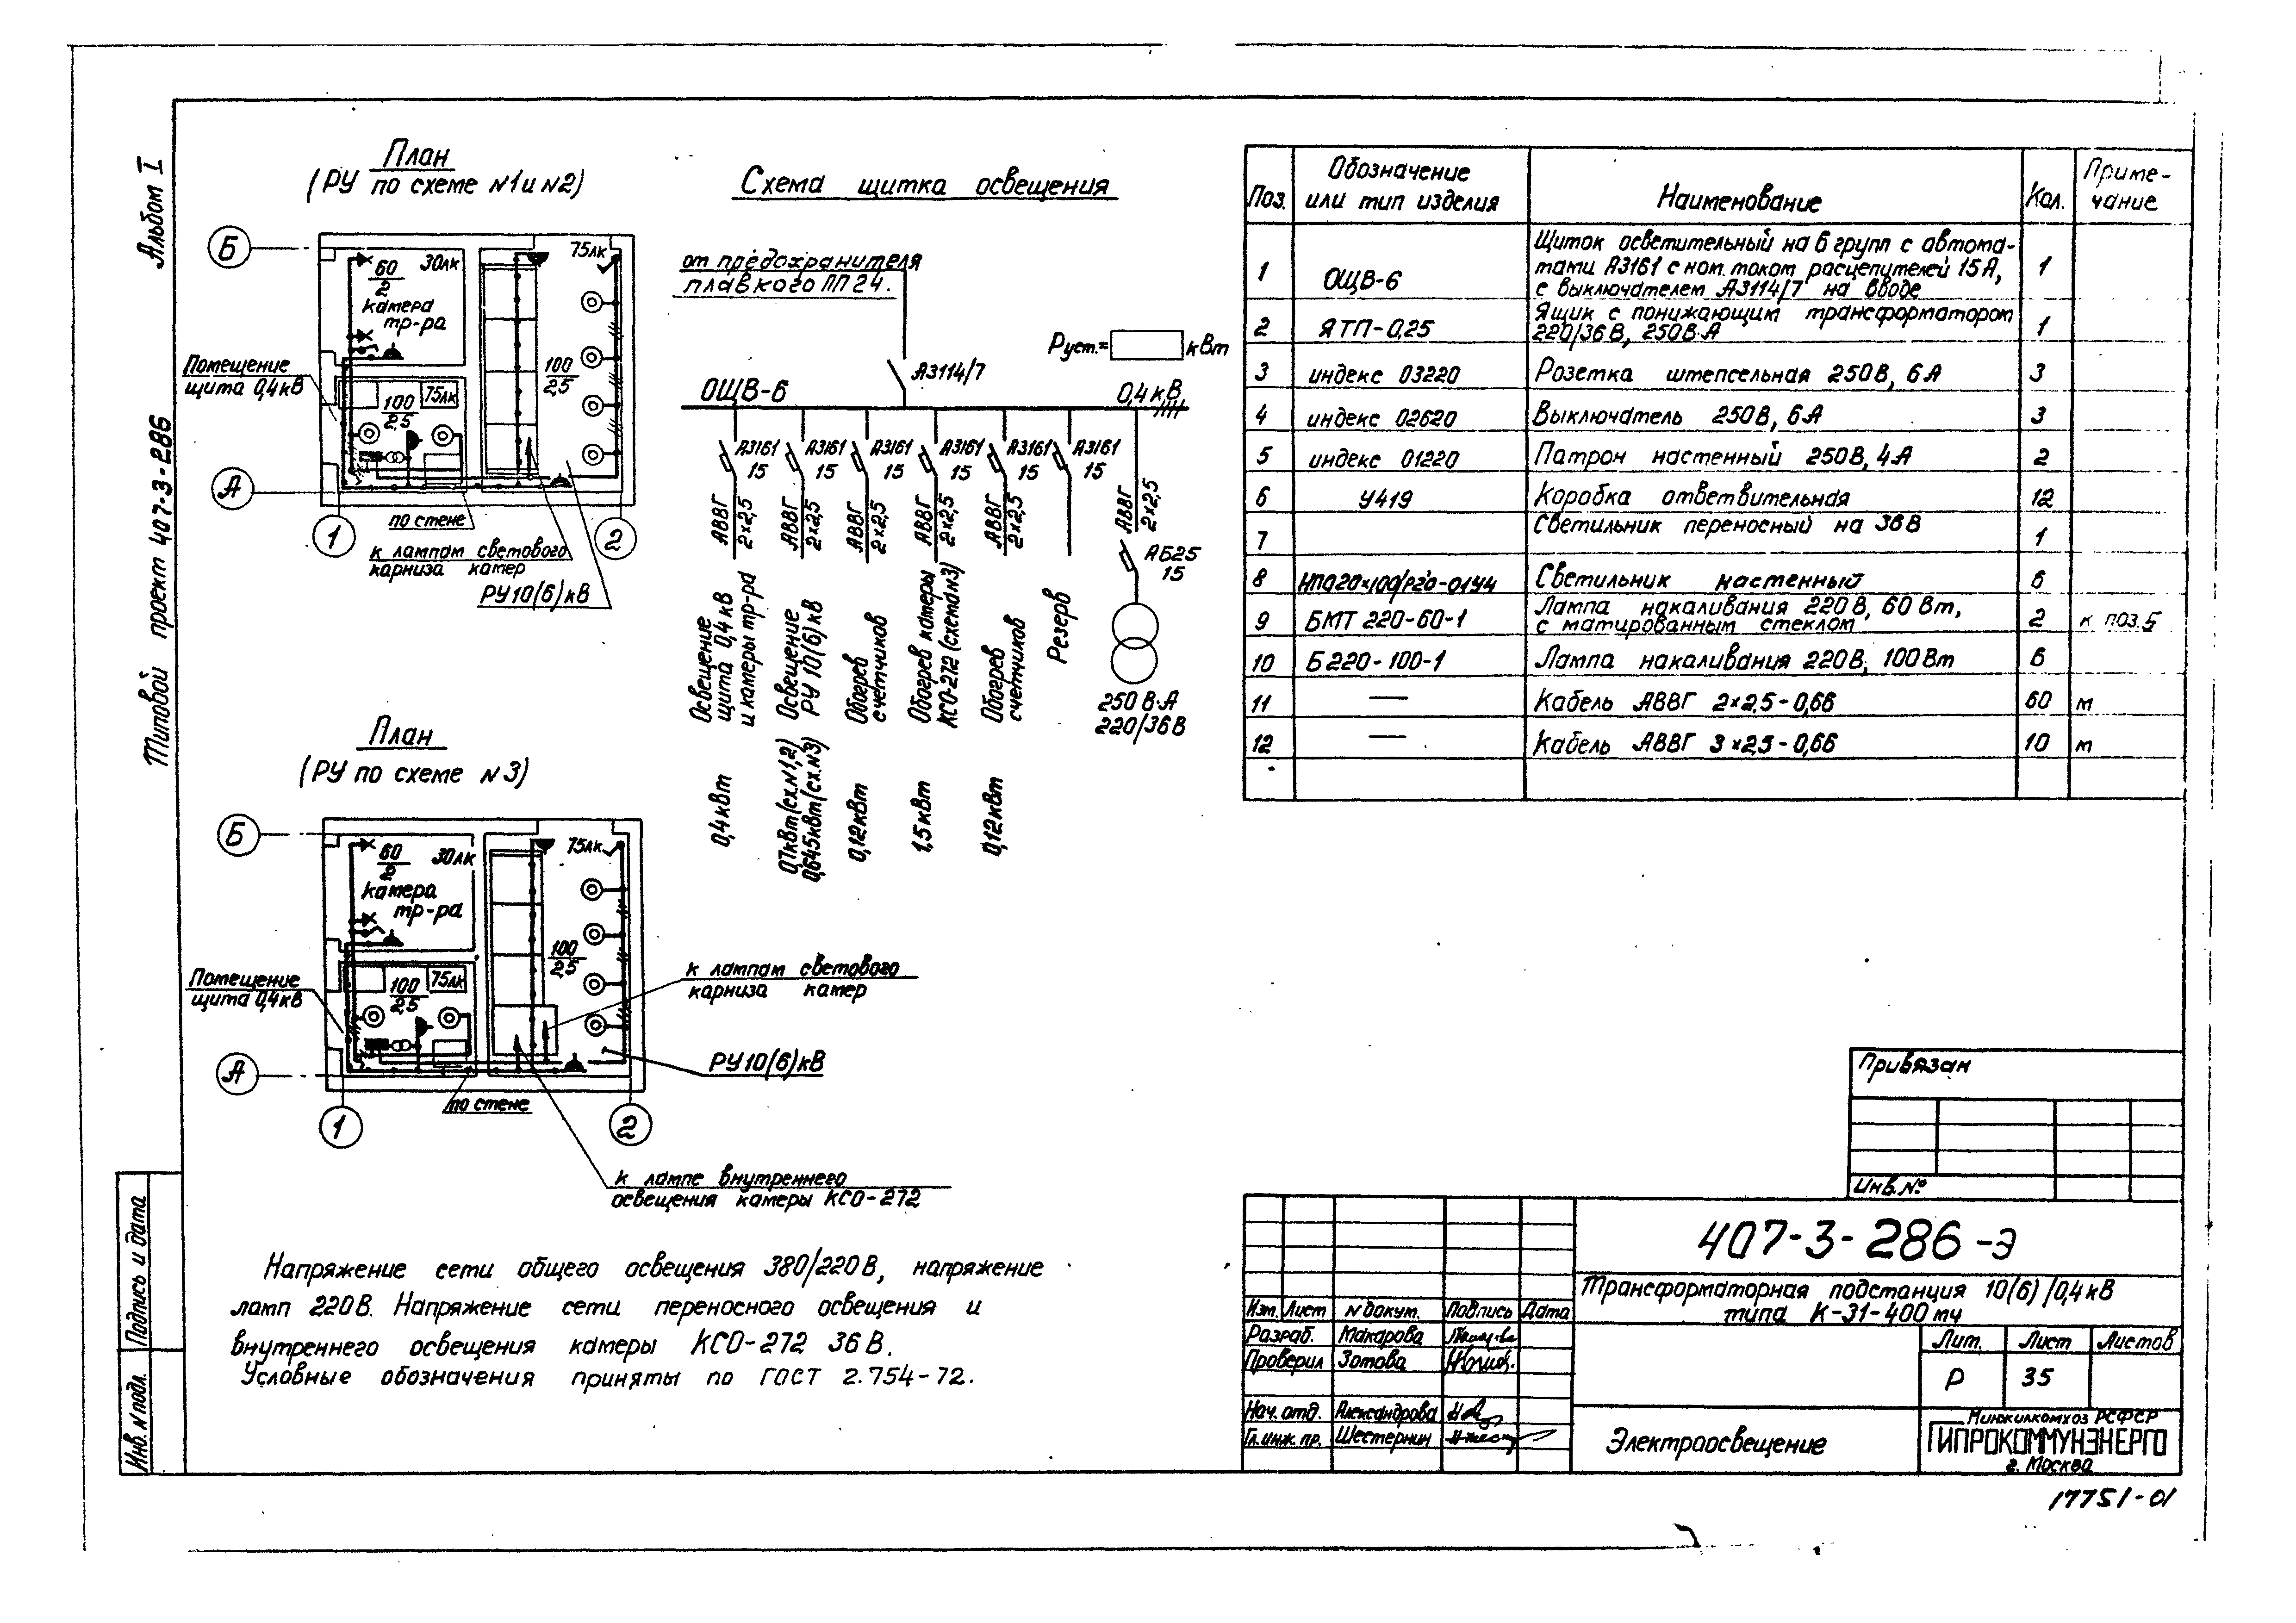 Альбом I
Типовой проект 407-3-286
План
(РУ по схеме N1 и N2)
Б
60
2
30лк
камера
тр-ра
75лк
100
2,5
Помещение
щита 0,4кВ
100
2,5
75лк
А
1
2
по стене
к лампам светового
карниза камер
РУ10(6)кВ
План
(РУ по схеме N3)
Б
60
2
30лк
камера
тр-ра
75лк
100
2,5
Помещение
щита 0,4кВ
100
2,5
75лк
А
1
2
по стене
к лампам светового
карниза камер
РУ10(6)кВ
к лампе внутреннего
освещения камеры КСО-272
Схема щитка освещения
от предохранителя
плавкого ПП24.
А3114/7
Руст.= кВт
ОЩВ-6
0,4кВ
А3161
15
А3161
15
А3161
15
А3161
15
А3161
15
А3161
15
АВВГ
2×2,5
АВВГ
2×2,5
АВВГ
2×2,5
АВВГ
2×2,5
АВВГ
2×2,5
АВВГ
2×2,5
АБ25
15
250В·А
220/36В
Освещение
щита 0,4кВ
и камеры тр-ра
0,4кВт
Освещение
РУ 10(6)кВ
0,7кВт(сх.N1,2)
0,645кВт(сх.N3)
Обогрев
счетчиков
0,12кВт
Обогрев камеры
КСО-272 (схема N3)
1,5кВт
Обогрев
счетчиков
0,12кВт
Резерв
Поз. Обозначение или тип изделия Наименование Кол. Примечание
1 ОЩВ-6 Щиток осветительный на 6 групп с автома-
тами А3161 с ном. током расцепителей 15А, 1
с выключателем А3114/7 на вводе
2 ЯТП-0,25 Ящик с понижающим трансформатором 1
220/36В, 250В·А
3 индекс 03220 Розетка штепсельная 250В, 6А 3
4 индекс 02620 Выключатель 250В, 6А 3
5 индекс 01220 Патрон настенный 250В, 4А 2
6 У419 Коробка ответвительная 12
7 Светильник переносный на 36В 1
8 НПО20×100/Р20-01У4 Светильник настенный 6
9 БМТ 220-60-1 Лампа накаливания 220В, 60Вт, 2 к поз.5
с матированным стеклом
10 Б220-100-1 Лампа накаливания 220В, 100Вт 6
11 — Кабель АВВГ 2×2,5-0,66 60 м
12 — Кабель АВВГ 3×2,5-0,66 10 м
Напряжение сети общего освещения 380/220В, напряжение
ламп 220В. Напряжение сети переносного освещения и
внутреннего освещения камеры КСО-272 36В.
Условные обозначения приняты по ГОСТ 2.754-72.
Привязан
Инв.№
407-3-286-Э
Трансформаторная подстанция 10(6)/0,4кВ
типа К-31-400мч
Изм. Лист N докум. Подпись Дата
Разраб. Макарова
Проверил Зотова
Нач. отд. Александрова
Гл. инж. пр. Шестернин
Лит. Лист Листов
Р 35
Электроосвещение
Минжилкомхоз РСФСР
ГИПРОКОММУНЭНЕРГО
г. Москва
Подпись и дата
Инв. N подл.
17751-01